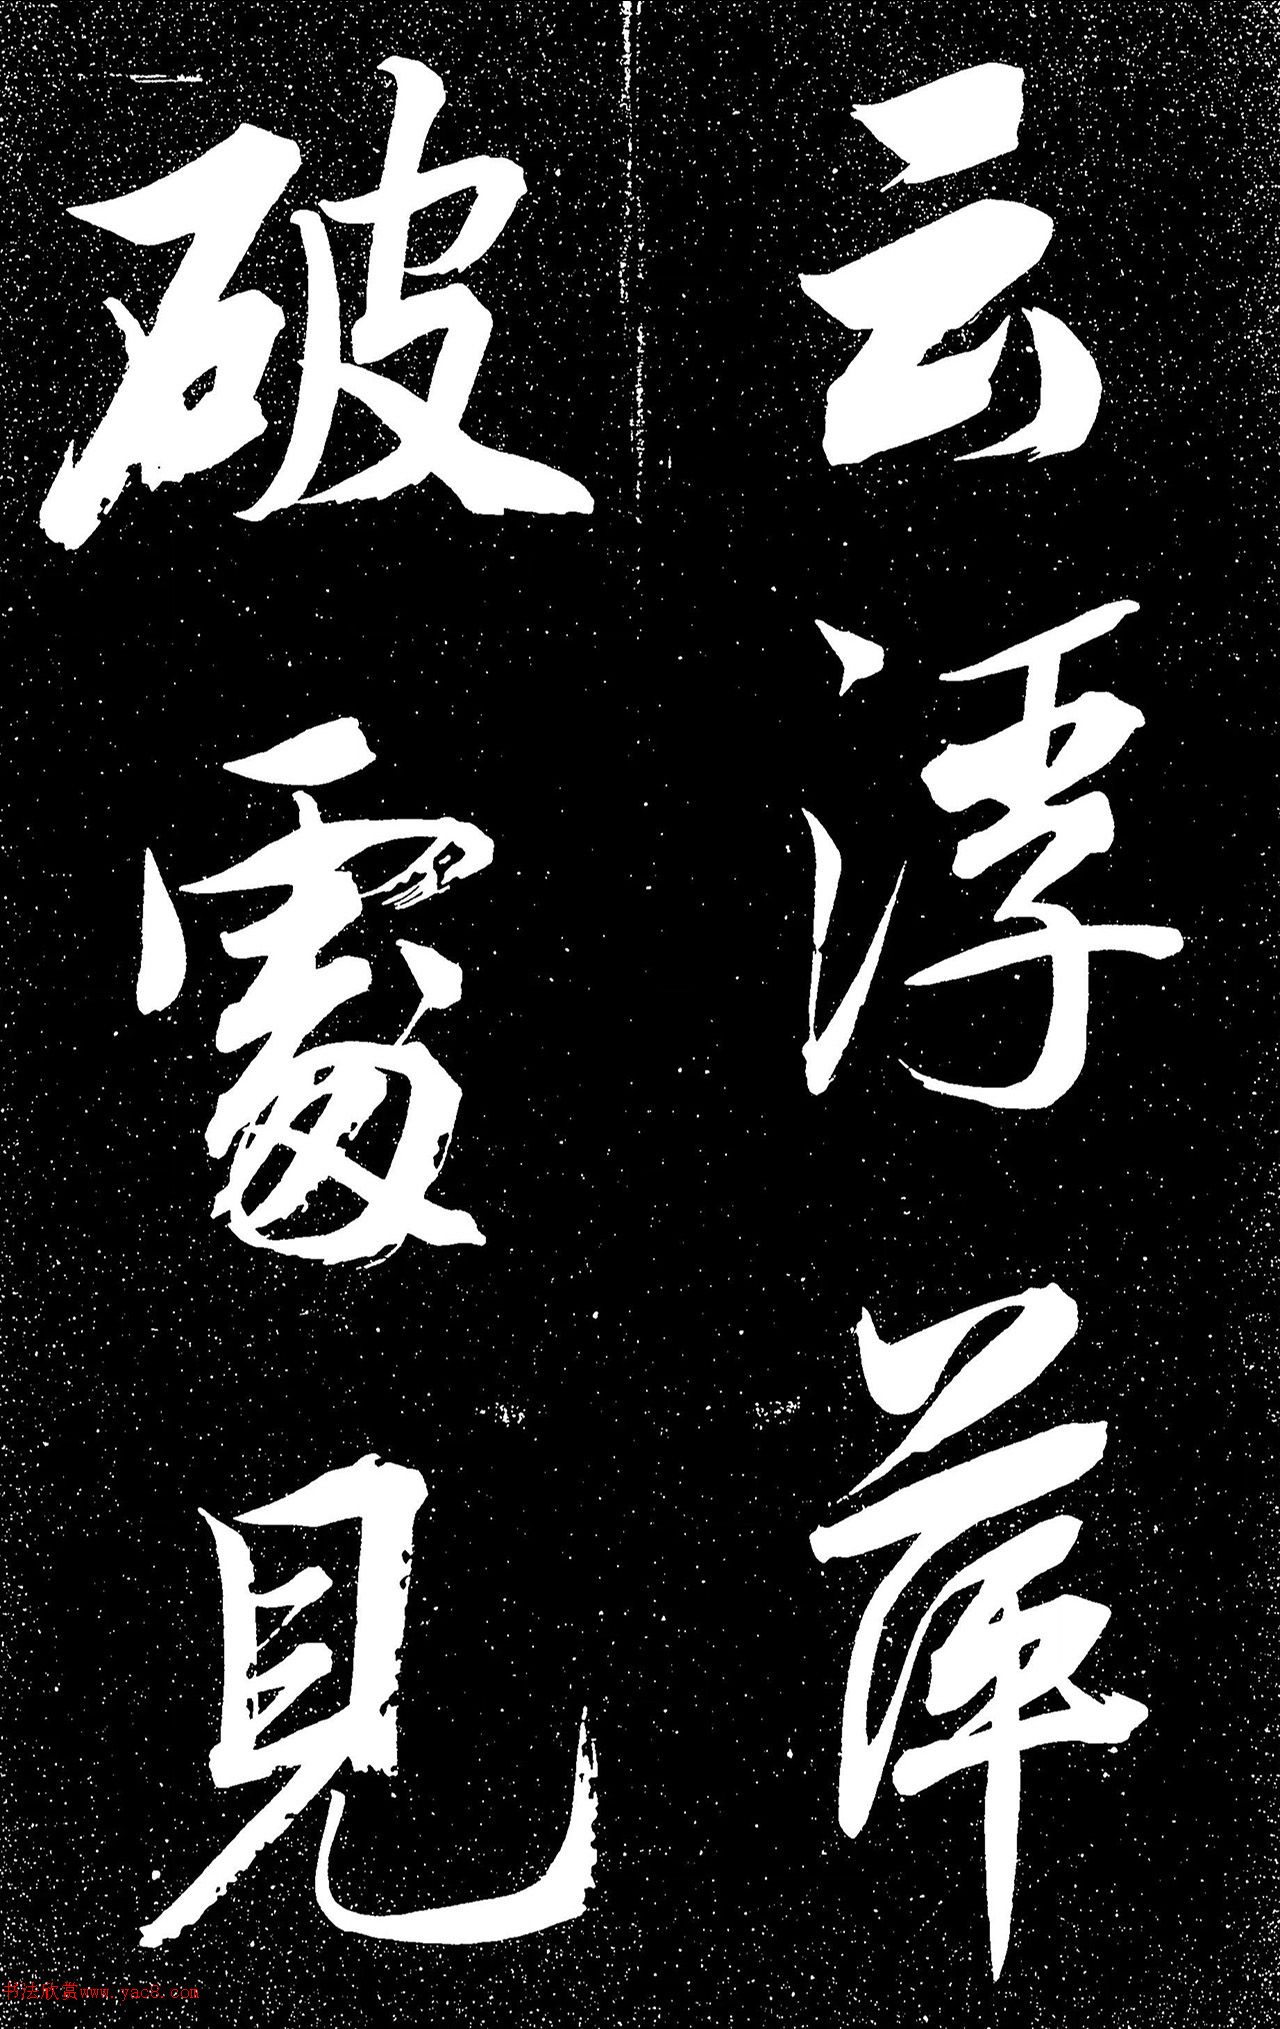 云浮萍
破處見
书法欣赏www.yac8.com